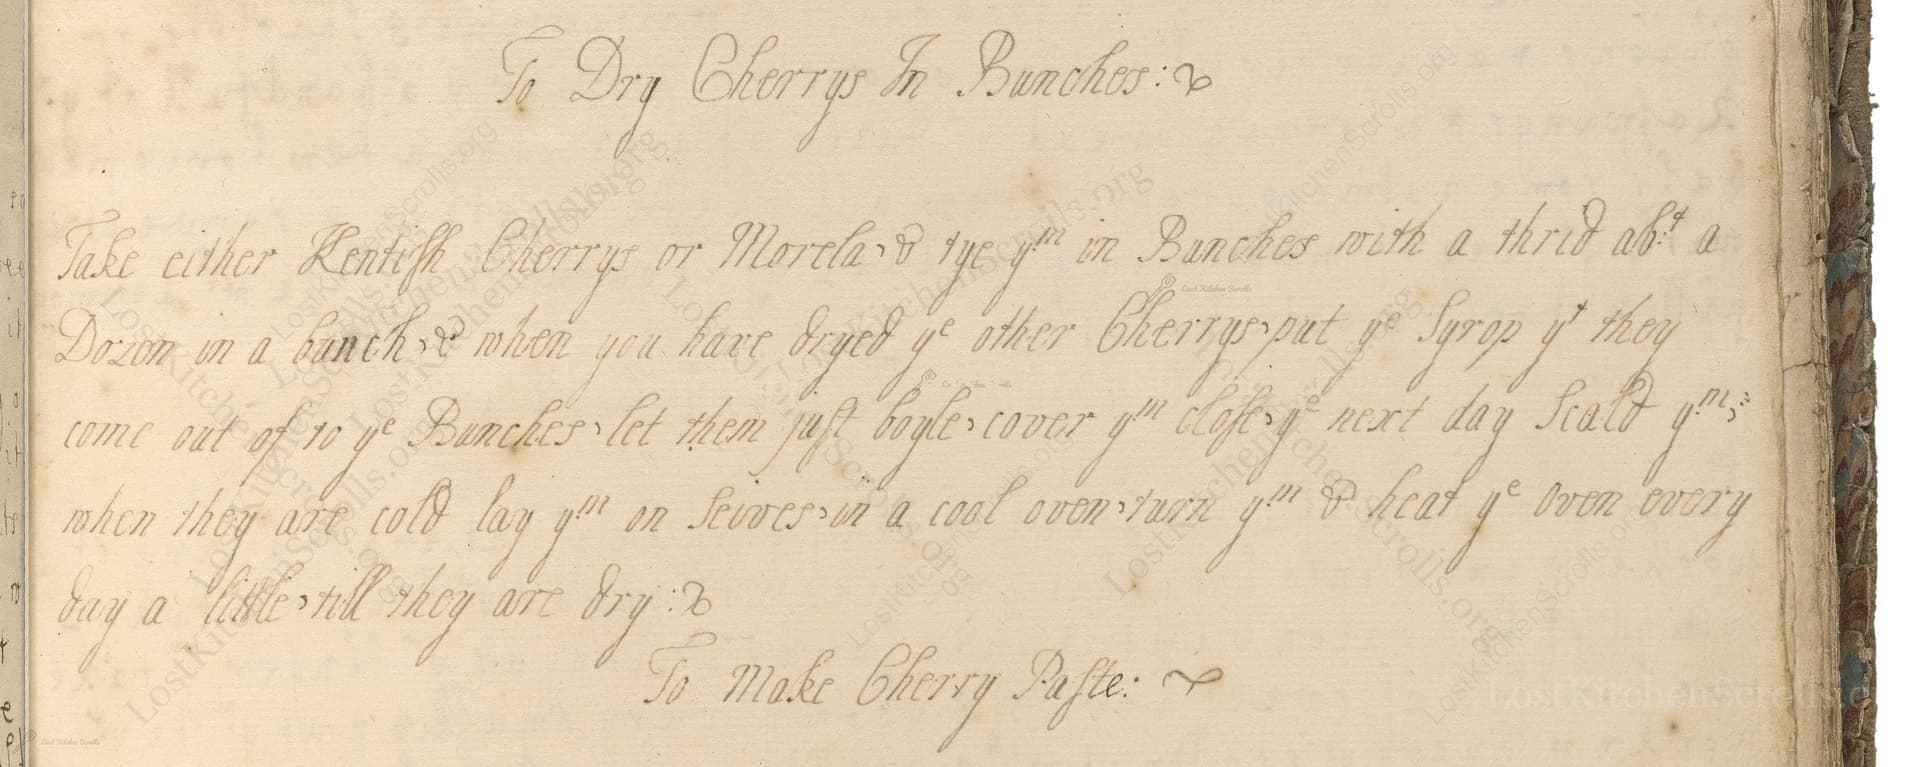 To Dry Cherrys In Bunches:
Take either Kentish Cherrys or Morela, & tye yᵐ in Bunches with a thrid abᵗ a
Dozen in a bunch, & when you have dryed yᵉ other Cherrys, put yᵉ Syrop yᵗ they
come out of to yᵉ Bunches, let them just boyle, cover yᵐ close, yᵉ next day Scald yᵐ,
when they are cold lay yᵐ on Seives, in a cool oven, turn yᵐ & heat yᵉ Oven every
day a little, till they are dry:
To Make Cherry Paste:
LostKitchenScrolls.org